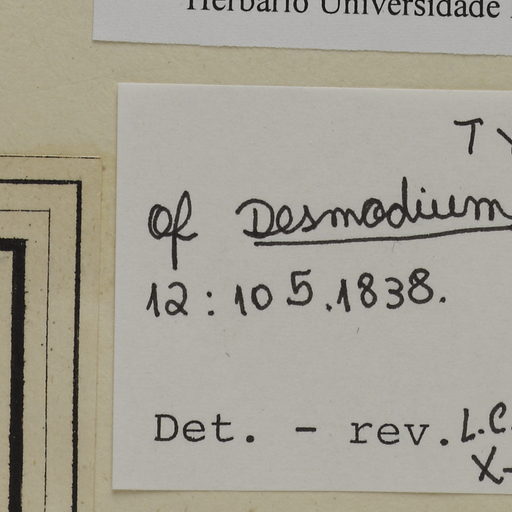 Herbario Universidade
TY
of Desmodium
12:105.1838.
Det. - rev. L.C.
X-